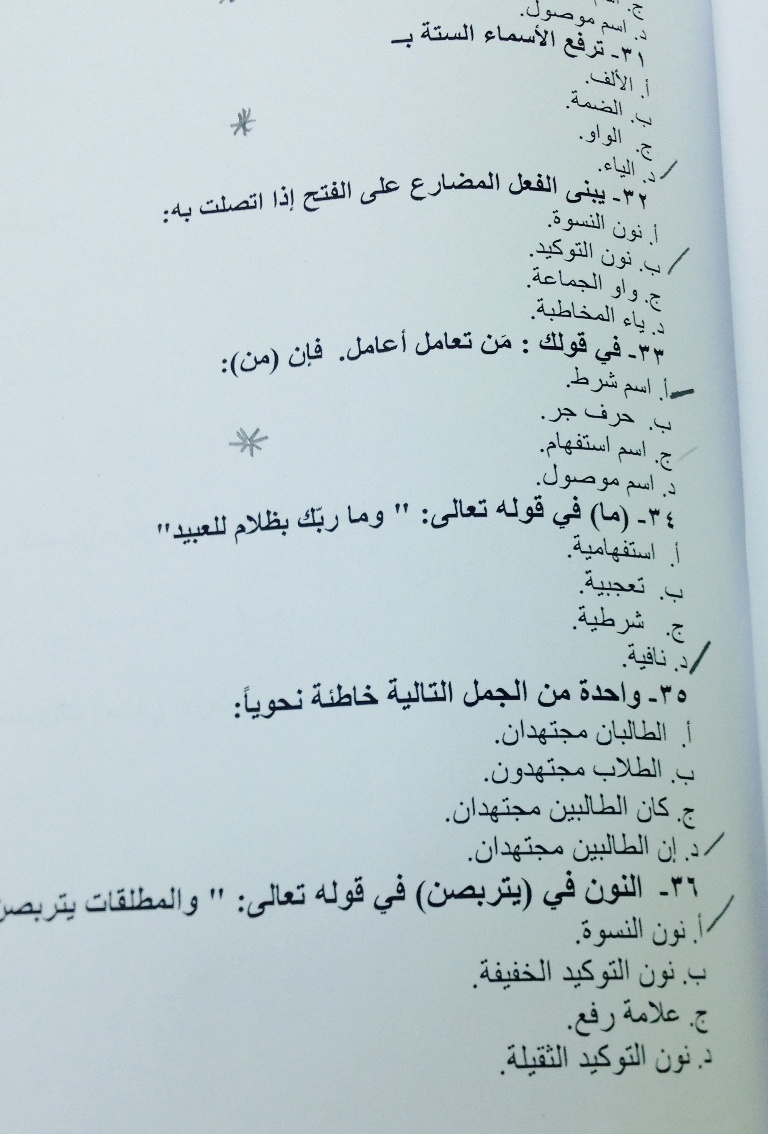 د. اسم موصول.
٣١- ترفع الأسماء الستة بـ
أ. الألف.
ب. الضمة.
ج. الواو.
د. الياء.
٣٢- يبنى الفعل المضارع على الفتح إذا اتصلت به:
أ. نون النسوة.
ب. نون التوكيد.
ج. واو الجماعة.
د. ياء المخاطبة.
٣٣- في قولك : مَن تعامل أعامل. فإن (من):
أ. اسم شرط.
ب. حرف جر.
ج. اسم استفهام.
د. اسم موصول.
٣٤- (ما) في قوله تعالى: " وما ربّك بظلام للعبيد"
أ. استفهامية.
ب. تعجبية.
ج. شرطية.
د. نافية.
٣٥- واحدة من الجمل التالية خاطئة نحوياً:
أ. الطالبان مجتهدان.
ب. الطلاب مجتهدون.
ج. كان الطالبين مجتهدان.
د. إن الطالبين مجتهدان.
٣٦- النون في (يتربصن) في قوله تعالى: " والمطلقات يتربصن
أ. نون النسوة.
ب. نون التوكيد الخفيفة.
ج. علامة رفع.
د. نون التوكيد الثقيلة.